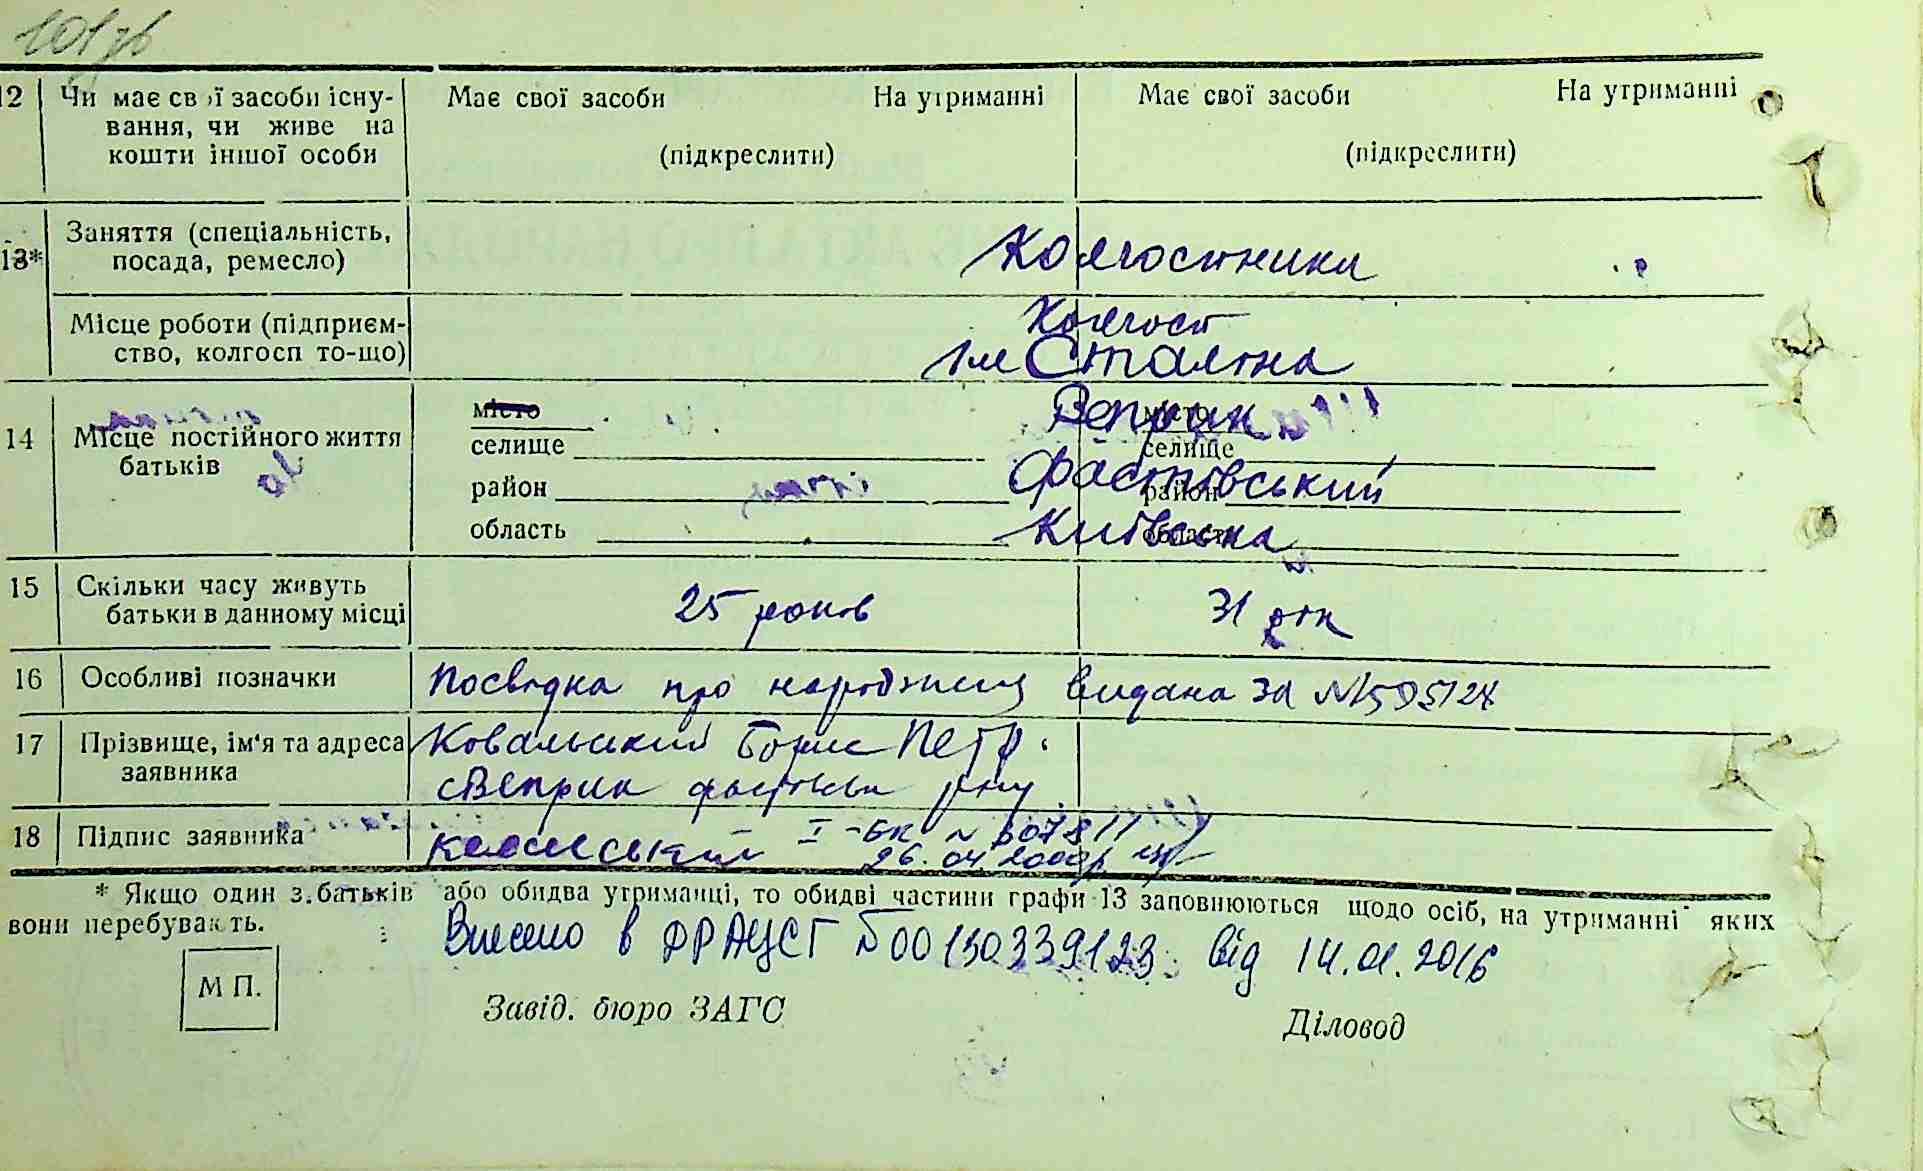 12 Чи має свої засоби існу-
вання, чи живе на
кошти іншої особи
Має свої засоби На утриманні
(підкреслити)
Має свої засоби На утриманні
(підкреслити)
13* Заняття (спеціальність,
посада, ремесло)
Колгостники
Місце роботи (підприєм-
ство, колгосп то-що)
Колгосп
Ім Сталіна
14 Місце постійного життя
батьків
місто
селище
район
область
місто
селище
район
область
Веприк
Фастівський
Київська
15 Скільки часу живуть
батьки в данному місці
25 років
31 рік
16 Особливі позначки
Посвідка про народження видана за №
17 Прізвище, ім'я та адреса
заявника
Ковальський Борис Петр.
с Веприк
18 Підпис заявника
I-БК № 307811
26.04.2000р
* Якщо один з батьків або обидва утриманці, то обидві частини графи 13 заповнюються щодо осіб, на утриманні яких
вони перебувають.
Внесено в ДРАЦСГ №00130339123 від 14.01.2016
М П.
Завід. бюро ЗАГС
Діловод